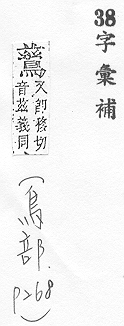 38字彙補
又即移切
音兹義同
(鳥部.
P268)